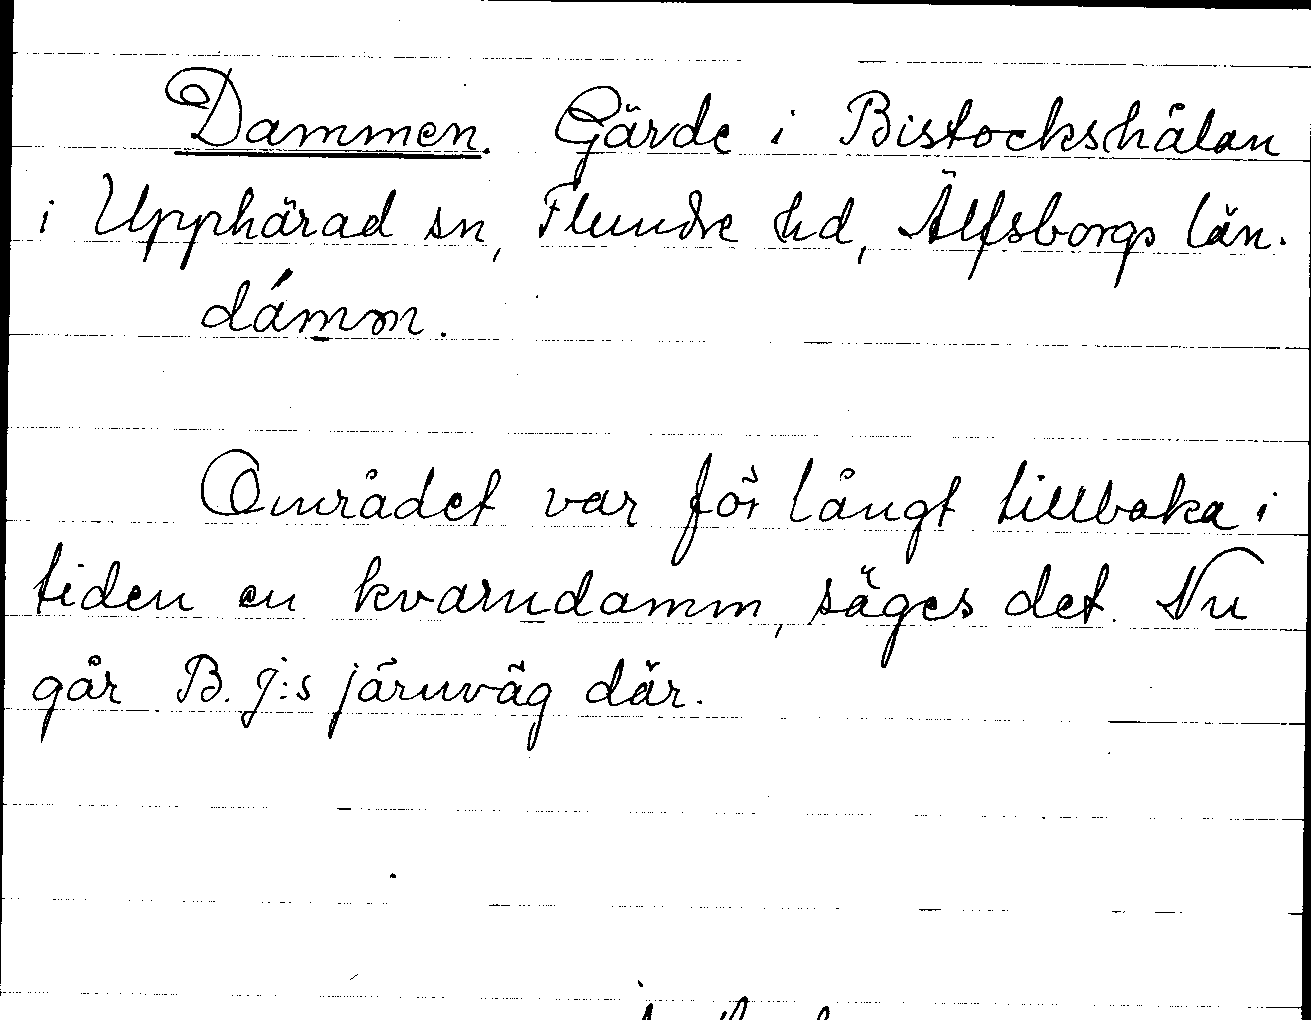 Dammen. Gärde i Bistockshålan
i Upphärad sn, Flundre hd, Älfsborgs län.
dámm.
Området var för långt tillbaka i
tiden en kvarndamm, säges det. Nu
går B.J:s järnväg där.